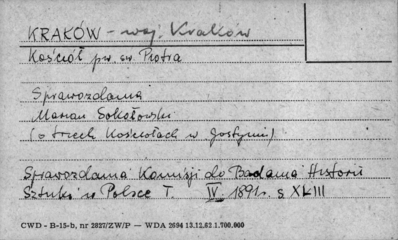 KRAKÓW - woj. Kraków
Kościół pw. św Piotra
Sprawozdania
Marian Sokołowski
(o trzech Kościołach w Gostyniu)
Sprawozdania Komisji do Badania Historii
Sztuki w Polsce T. IV. 1891r. s XLIII
CWD - B-15-b, nr 2827/ZW/P — WDA 2694 13.12.62 1.700.000